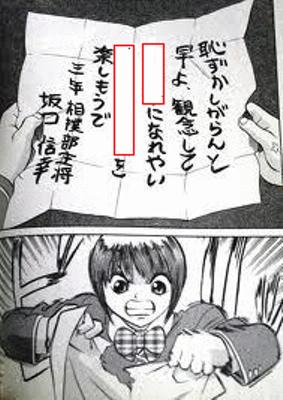 恥ずかしがらんと
早よ、観念して
になれやい
を
楽しもうで
三年 相撲部主将
坂口 信幸